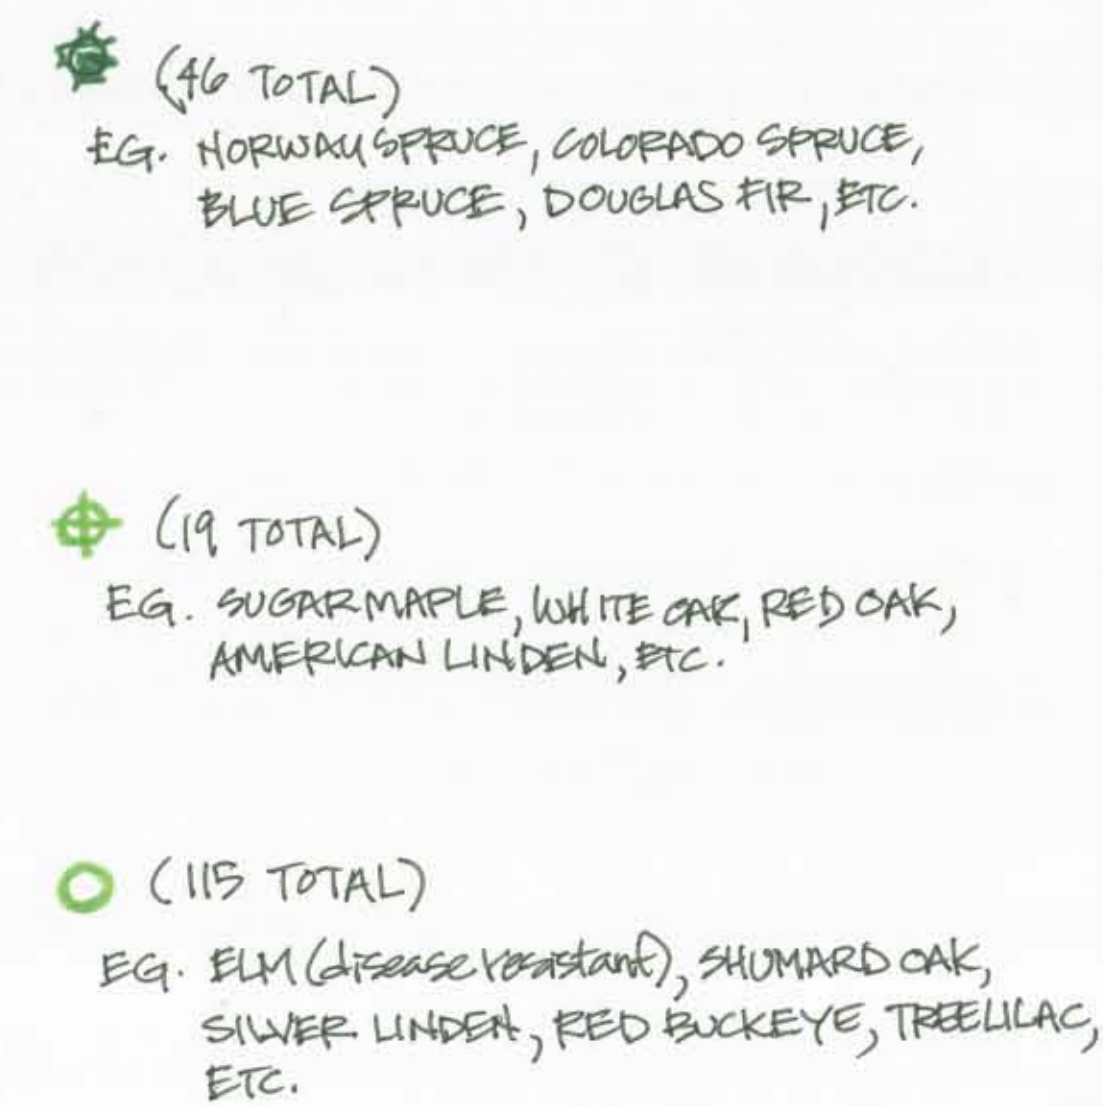 (46 TOTAL)
EG. NORWAY SPRUCE, COLORADO SPRUCE,
BLUE SPRUCE, DOUGLAS FIR, ETC.
(19 TOTAL)
EG. SUGAR MAPLE, WHITE OAK, RED OAK,
AMERICAN LINDEN, ETC.
(115 TOTAL)
EG. ELM (disease resistant), SHUMARD OAK,
SILVER LINDEN, RED BUCKEYE, TREE LILAC,
ETC.